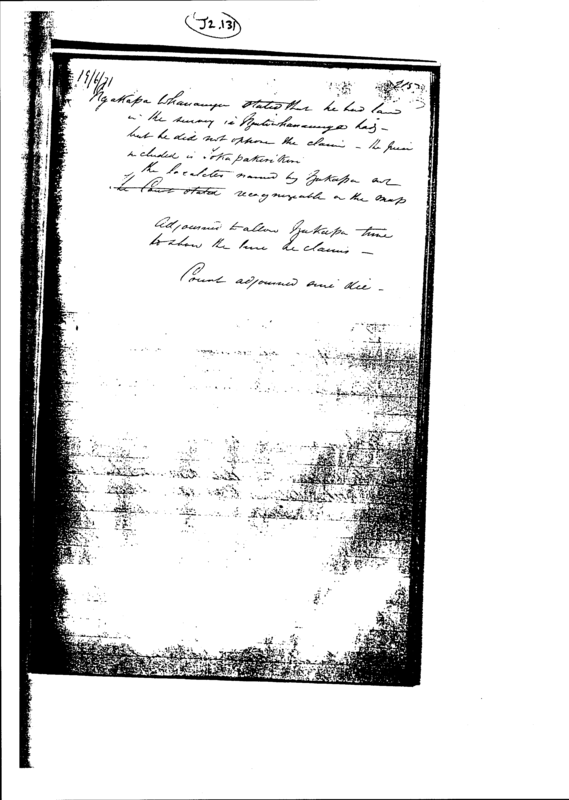 J2.131
19/6/71
Ngakapa Whanaunga stated that he had land
in the survey is
but he did not oppose the claim - the piece
included is
the localities named by Ngakapa are
the Court stated recognizable on the map
Adjourned to allow Ngakapa time
to show the land he claims -
Court adjourned sine die -